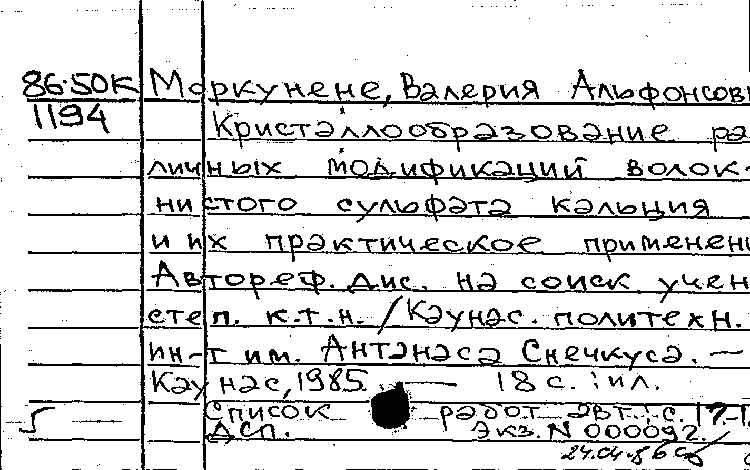 86-50К Моркунене, Валерия Альфонсов
1194 Кристаллообразование ра
личных модификаций волок-
нистого сульфата кальция
и их практическое применен
Автореф. дис. на соиск учен
степ. к.т.н. /Каунас. политехн.
ин-т им. Антанаса Снечкуса. —
Каунас, 1985 — 18 с. : ил.
Список работ авт.: с. 17-1
ДСП. Экз. N 000092.
24.04.86